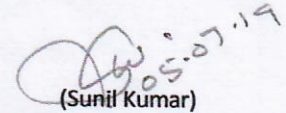 05.07.19
(Sunil Kumar)